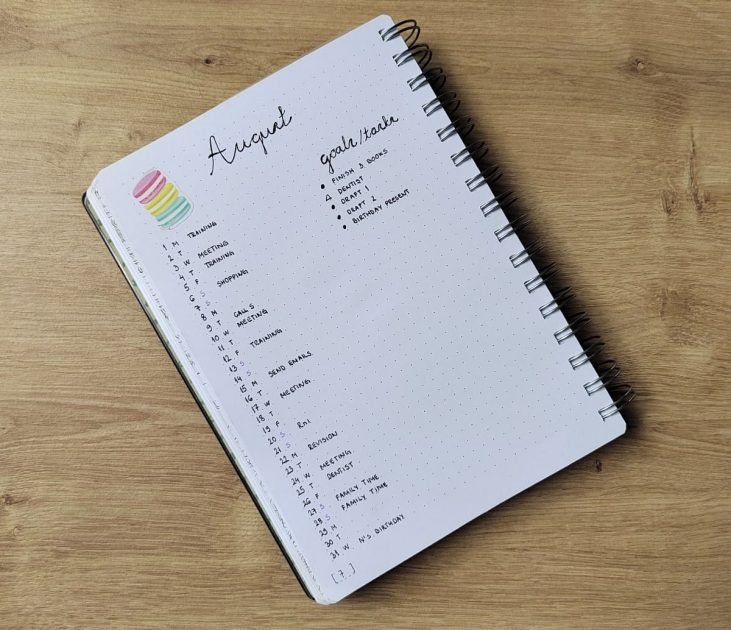 August
1 M TRAINING
2 T
3 W MEETING
4 T TRAINING
5 F
6 S SHOPPING
7 S
8 M
9 T CALLS
10 W MEETING
11 T
12 F TRAINING
13 S
14 S
15 M SEND EMAILS
16 T
17 W MEETING
18 T
19 F
20 S
21 S
22 M REVISION
23 T
24 W MEETING
25 T DENTIST
26 F
27 S FAMILY TIME
28 S FAMILY TIME
29 M
30 T
31 W N'S BIRTHDAY
[7]
goals/tasks
• FINISH 3 BOOKS
DENTIST
• DRAFT 1
• DRAFT 2
• BIRTHDAY PRESENT